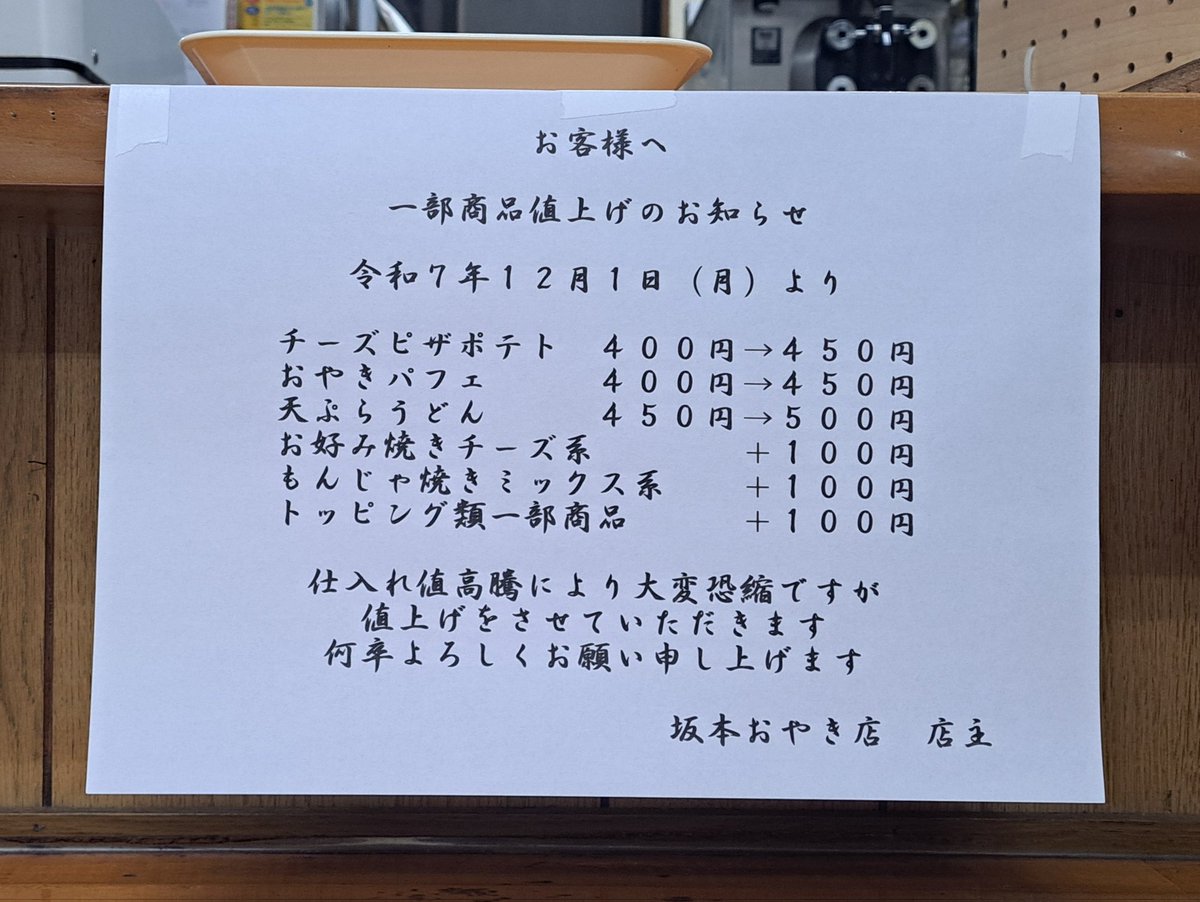 お客様へ
一部商品値上げのお知らせ
令和7年12月1日(月)より
チーズピザポテト 400円→450円
おやきパフェ 400円→450円
天ぷらうどん 450円→500円
お好み焼きチーズ系 +100円
もんじゃ焼きミックス系 +100円
トッピング類一部商品 +100円
仕入れ値高騰により大変恐縮ですが
値上げをさせていただきます
何卒よろしくお願い申し上げます
坂本おやき店 店主